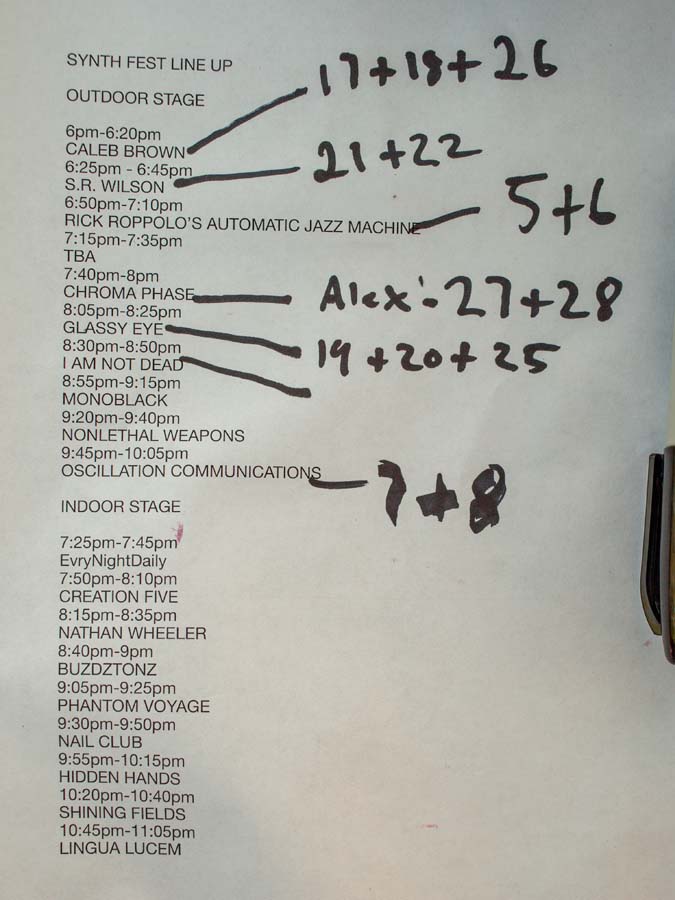 SYNTH FEST LINE UP
17+18+26
OUTDOOR STAGE
6pm-6:20pm
CALEB BROWN
21+22
6:25pm - 6:45pm
S.R. WILSON
6:50pm-7:10pm
RICK ROPPOLO'S AUTOMATIC JAZZ MACHINE 5+6
7:15pm-7:35pm
TBA
7:40pm-8pm
CHROMA PHASE Alex:-27+28
8:05pm-8:25pm
GLASSY EYE 19+20+25
8:30pm-8:50pm
I AM NOT DEAD
8:55pm-9:15pm
MONOBLACK
9:20pm-9:40pm
NONLETHAL WEAPONS
9:45pm-10:05pm
OSCILLATION COMMUNICATIONS 7+8
INDOOR STAGE
7:25pm-7:45pm
EvryNightDaily
7:50pm-8:10pm
CREATION FIVE
8:15pm-8:35pm
NATHAN WHEELER
8:40pm-9pm
BUZDZTONZ
9:05pm-9:25pm
PHANTOM VOYAGE
9:30pm-9:50pm
NAIL CLUB
9:55pm-10:15pm
HIDDEN HANDS
10:20pm-10:40pm
SHINING FIELDS
10:45pm-11:05pm
LINGUA LUCEM